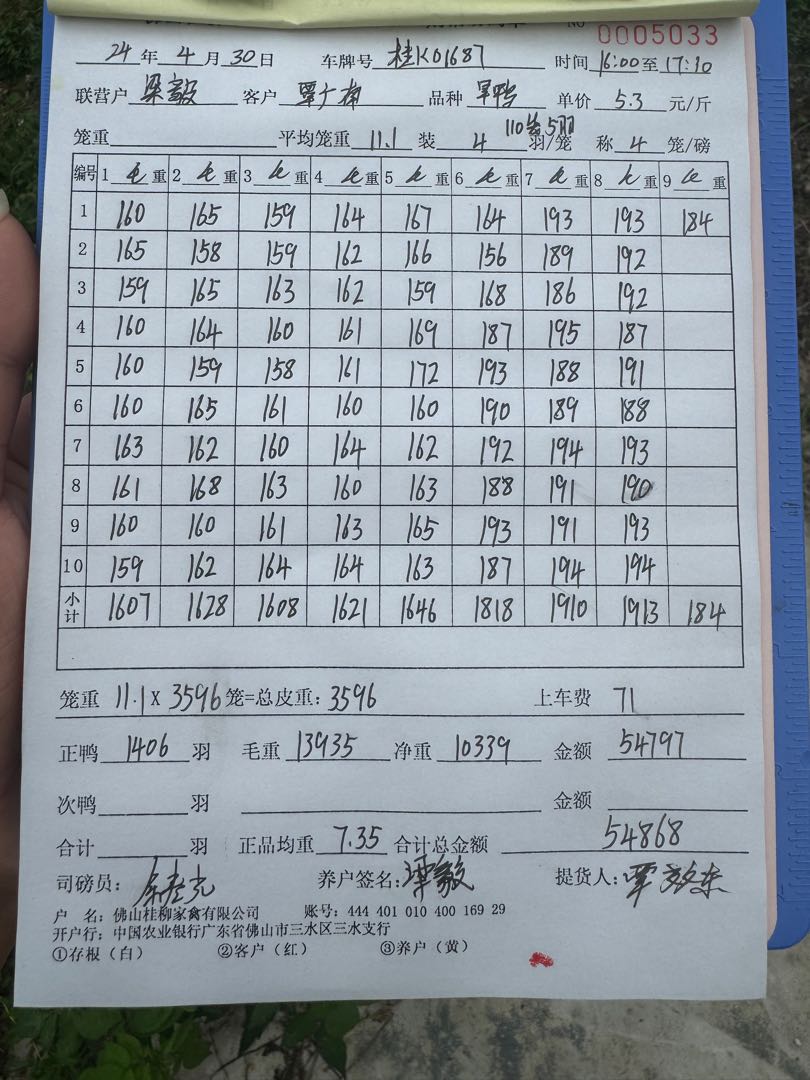 NO 0005033
24 年 4 月 30 日 车牌号 桂K01687 时间 16:00 至 17:10
联营户 梁毅 客户 覃广南 品种 旱鸭 单价 5.3 元/斤
笼重 平均笼重 11.1 装 4 110笼5羽 羽/笼 称 4 笼/磅
编号 1 毛 重 2 毛 重 3 毛 重 4 毛 重 5 毛 重 6 毛 重 7 毛 重 8 毛 重 9 毛 重
1 160 165 159 164 167 164 193 193 184
2 165 158 159 162 166 156 189 192
3 159 165 163 162 159 168 186 192
4 160 164 160 161 169 187 195 187
5 160 159 158 161 172 193 188 191
6 160 165 161 160 160 190 189 188
7 163 162 160 164 162 192 194 193
8 161 168 163 160 163 188 191 190
9 160 160 161 163 165 193 191 193
10 159 162 164 164 163 187 194 194
小计 1607 1628 1608 1621 1646 1818 1910 1913 184
笼重 11.1 X 3596 笼=总皮重: 3596 上车费 71
正鸭 1406 羽 毛重 13935 净重 10339 金额 54797
次鸭 羽 金额
合计 羽 正品均重 7.35 合计总金额 54868
司磅员: 养户签名: 提货人:
户 名: 佛山桂柳家禽有限公司 账号: 444 401 010 400 169 29
开户行: 中国农业银行广东省佛山市三水区三水支行
①存根（白） ②客户（红） ③养户（黄）